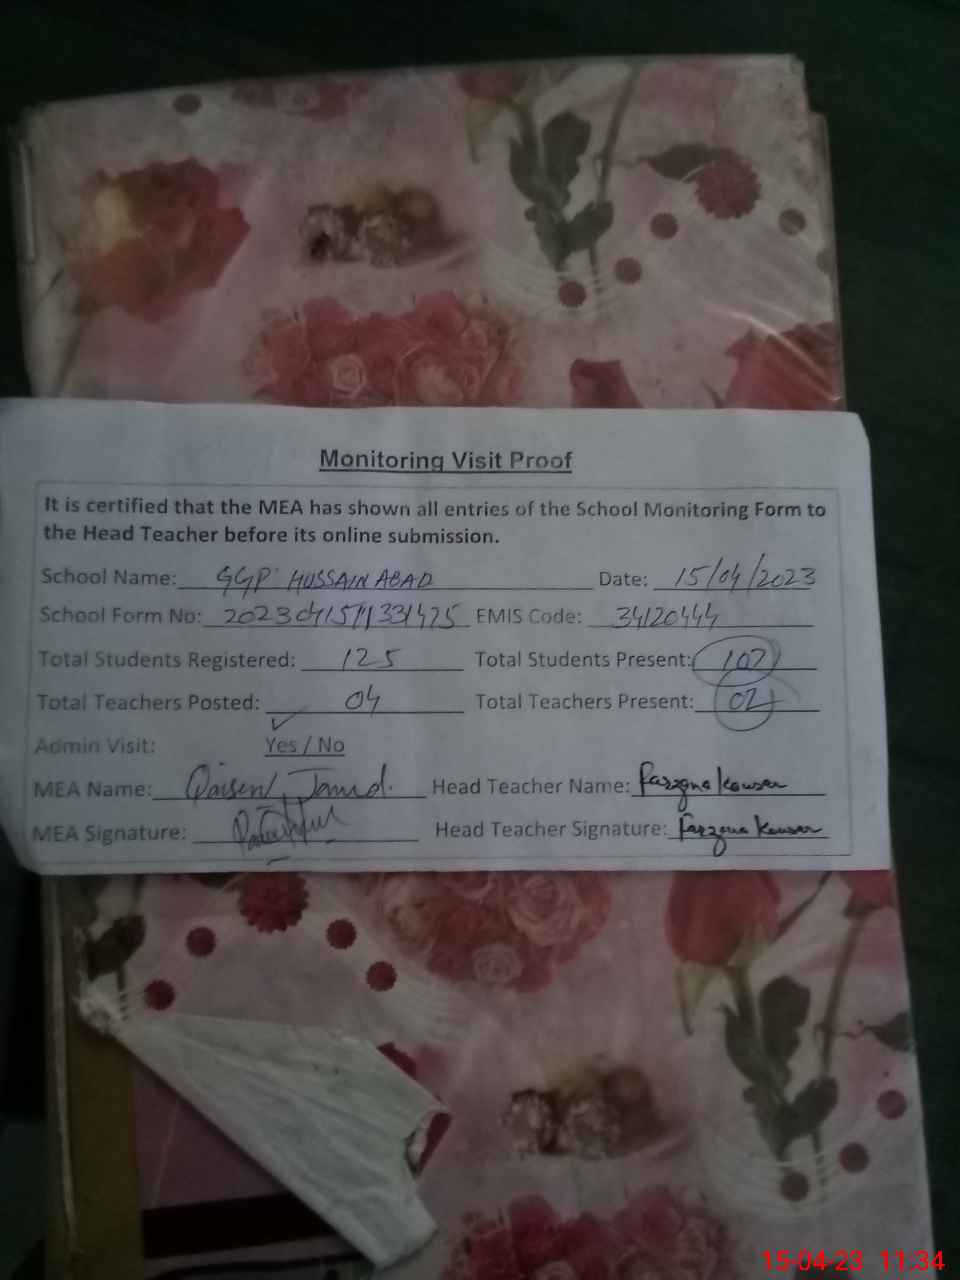 Monitoring Visit Proof
It is certified that the MEA has shown all entries of the School Monitoring Form to
the Head Teacher before its online submission.
School Name: GGP HUSSAIN ABAD Date: 15/04/2023
School Form No: EMIS Code: 34120444
Total Students Registered: 125 Total Students Present: 107
Total Teachers Posted: 04 Total Teachers Present:
Admin Visit: Yes / No
MEA Name: Head Teacher Name: Farzana Kousar
MEA Signature: Head Teacher Signature: Farzana Kousar
15-04-23 11:34